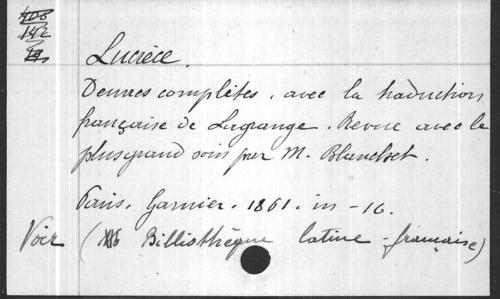 408
142
Lucrèce.
Oeuvres complètes. avec la traduction
française de Lagrange. Revue avec le
plus grand soin par M. Blanchet.
Paris. Garnier. 1861. in-16.
Voir (Billiothèque latine-française)